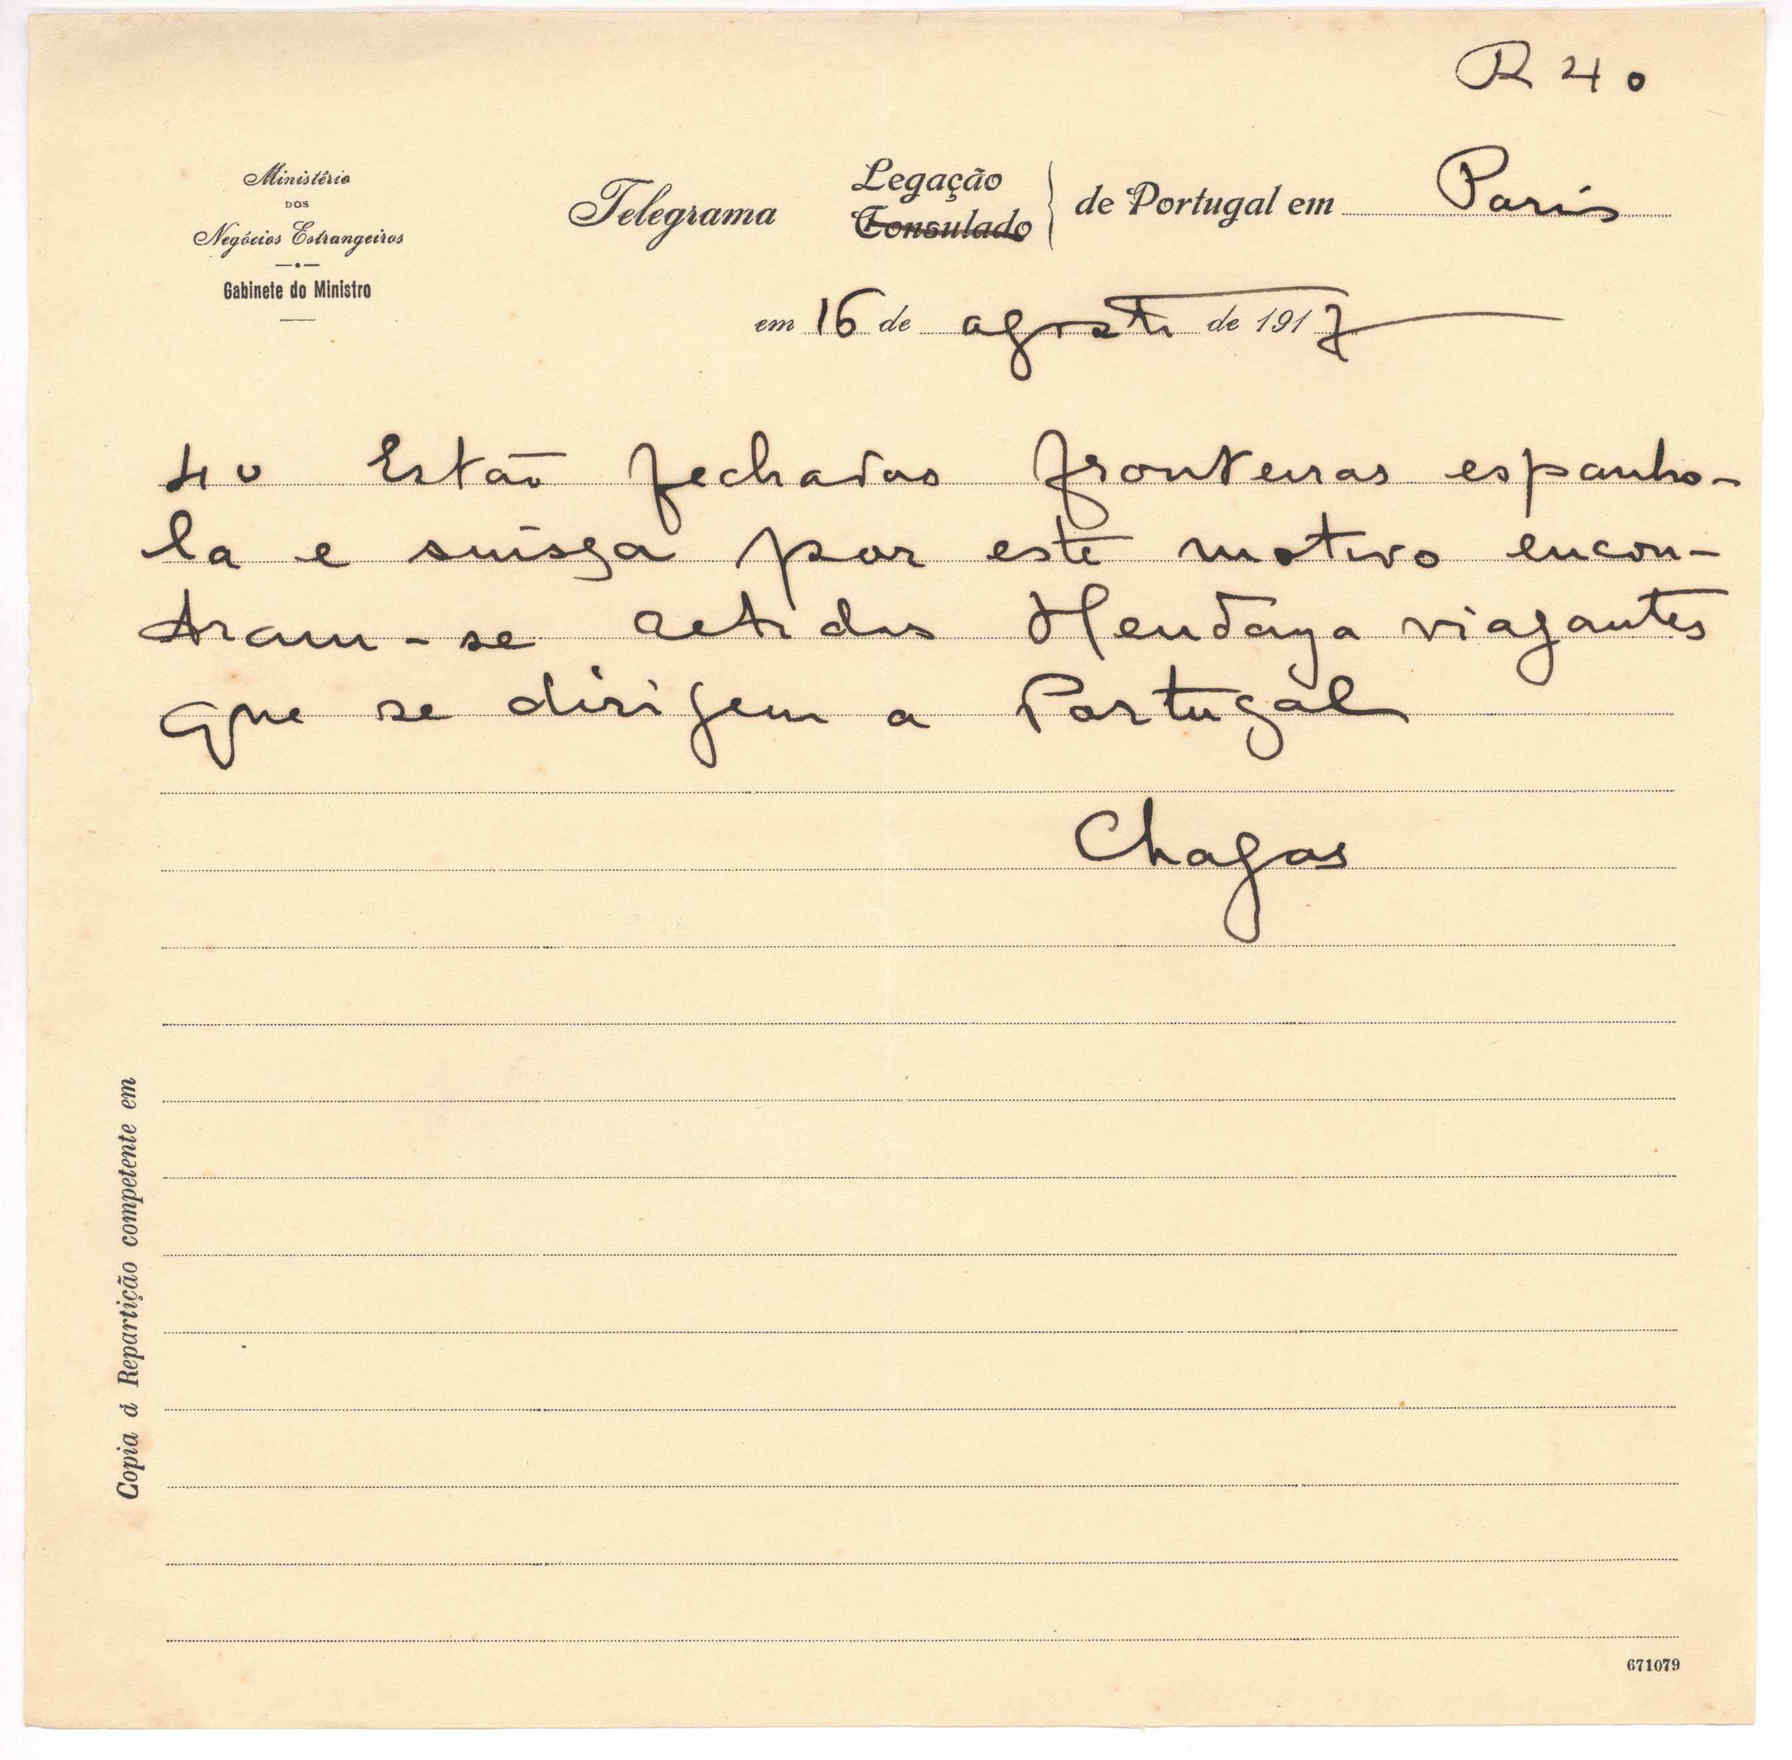 R 40
Ministério
DOS
Negócios Estrangeiros
Gabinete do Ministro
Telegrama Legação
Consulado
de Portugal em Paris
em 16 de agosto de 1917
40 Estão fechadas fronteiras espanho-
la e suissa por este motivo encon-
tram-se retidos Hendaya viajantes
que se dirigem a Portugal
Chagas
Copia á Repartição competente em
671079